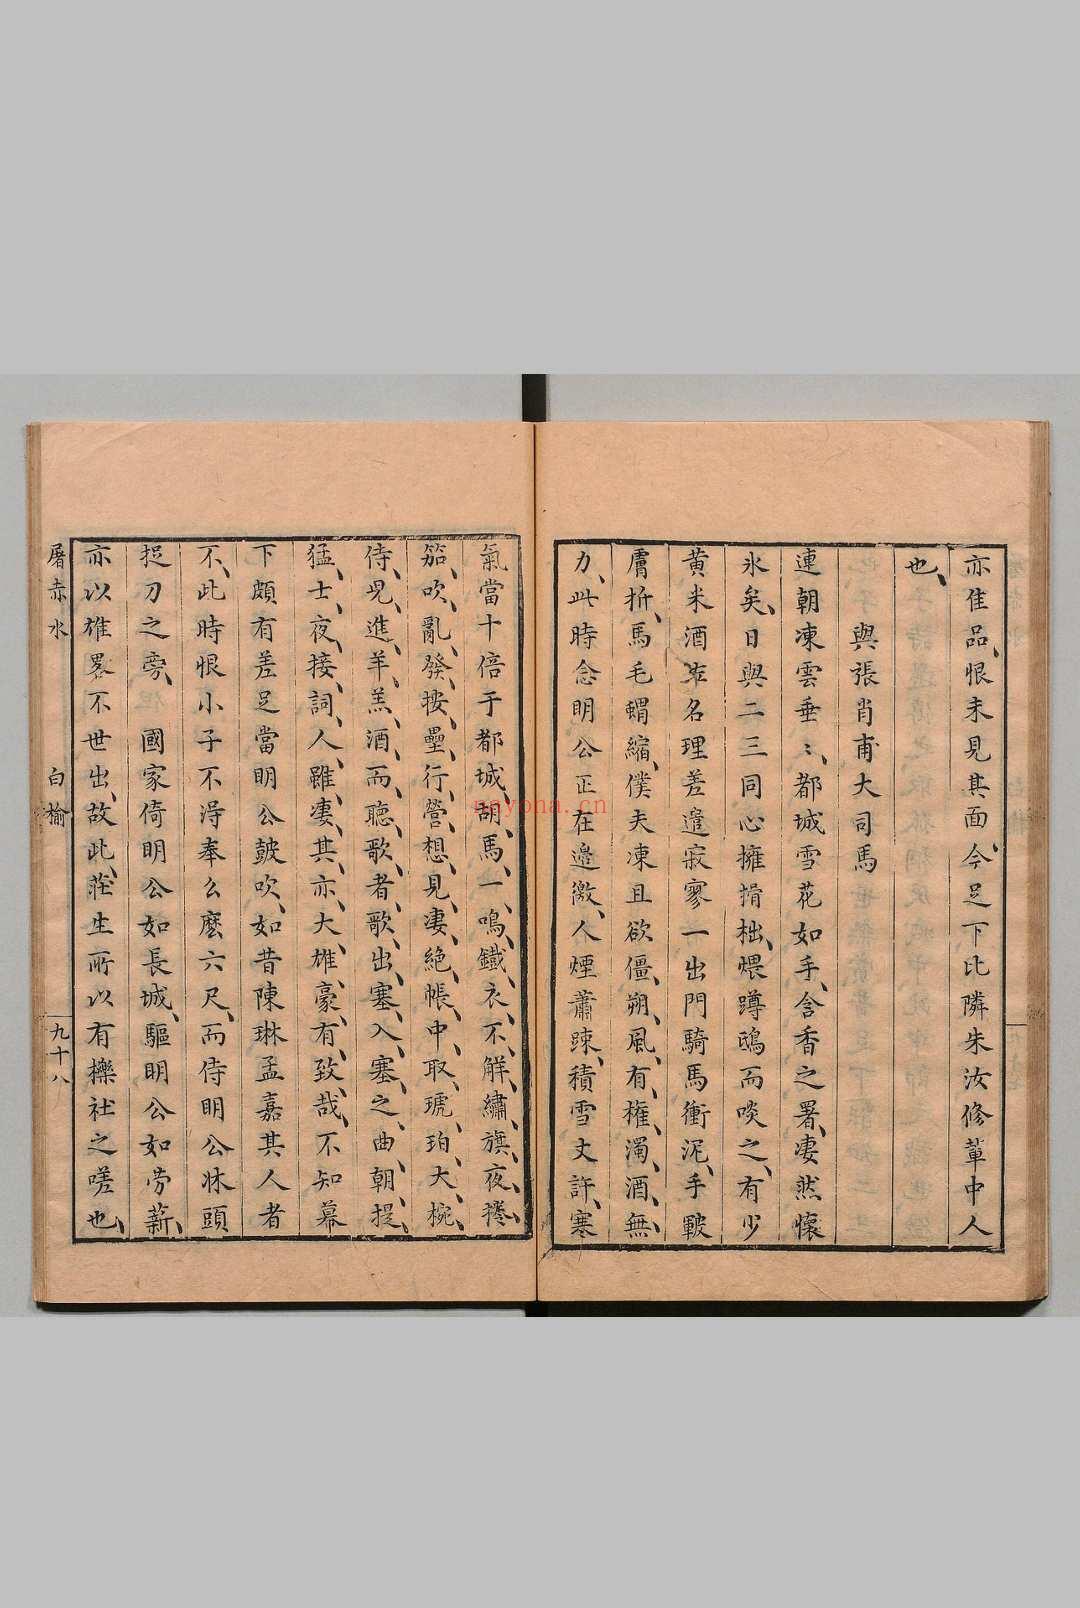 亦佳品、恨未見其面、今足下比隣朱汝修輩中人
也、
與張肖甫大司馬
連朝凍雲垂〻、都城雪花如手、含香之署、凄然懷
氷矣、日與二三同心擁榾柮、煨蹲鴟而啖之、有少
黃米酒𠰥名理差遣寂寥一出門騎馬衝泥、手皸
膚折、馬毛蝟縮、僕夫凍且欲僵、朔、風、有、権、濁、酒、無
力、此時念明公正在邉徼、人煙蕭踈、積雪丈許、寒
氣當十倍于都城、胡、馬、一、鳴、鐵、衣、不、解、繡、旗、夜、捲、
笳、吹、亂、發、按、壘、行、營、想、見、凄、絶、帳、中、取、琥、珀、大、椀、
侍、児、進、羊、羔、酒、而、聽、歌、者、歌、出、塞、入、塞、之、曲、朝、提、
猛、士、夜、接、詞、人、雖、凄、其、亦、大、雄、豪、有、致、哉、不知幕
下頗有差足當明公皷吹、如昔陳琳孟嘉其人者
不、此時恨小子不淂奉幺麼六尺、而侍明公牀頭
捉刀之旁、國家倚明公如長城、驅明公如勞薪、
亦以雄畧不世出、故此、莊生所以有櫟社之嗟也、
屠赤水
白榆
九十八
npyona.cn